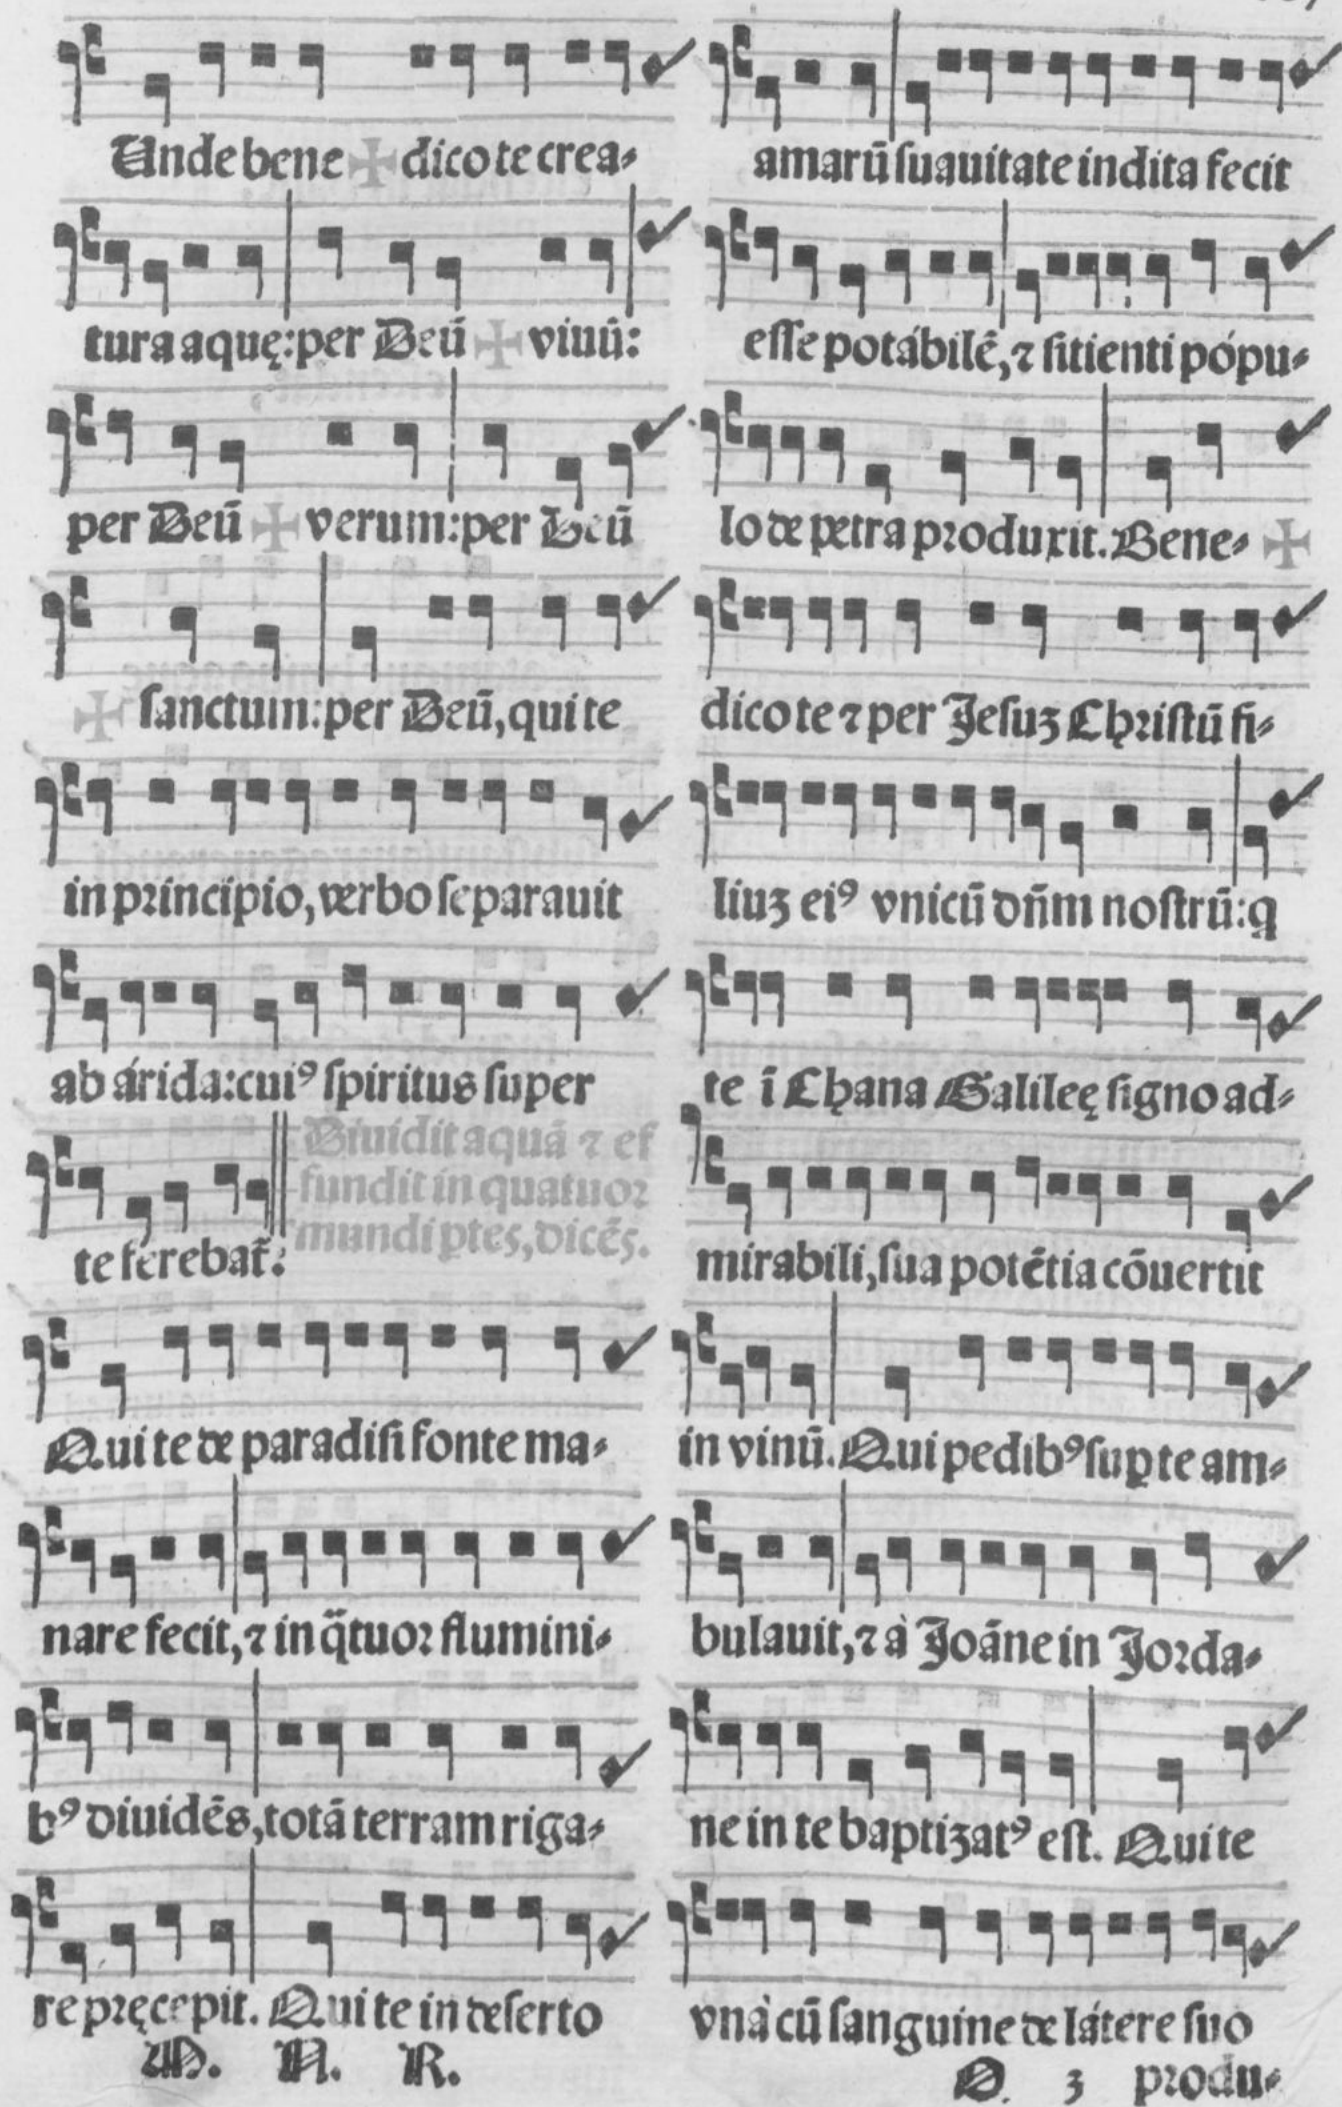 Unde bene ✠ dico te crea-
tura aquę: per Deū ✠ viuū:
per Deū ✠ verum: per Deū
✠ sanctum: per Deū, qui te
in principio, verbo separauit
ab árida: cuiꝰ spiritus super
te ferebat̃:
Diuidit aquā ⁊ ef
fundit in quatuor
mundi ꝑtes, dicēs.
Qui te de paradisi fonte ma-
nare fecit, ⁊ in q̃tuor flumini-
bꝰ diuidēs, totā terram riga-
re pręcepit. Qui te in deserto
M. N. R.
amarū suauitate indita fecit
esse potábilē, ⁊ sitienti pópu-
lo de petra produxit. Bene- ✠
dico te ⁊ per Jesuꝫ Christū fi-
liuꝫ eiꝰ vnicū dn̄m nostrū: q
te ī Chana Galileę signo ad-
mirabili, sua potētia cōuertit
in vinū. Qui pedibꝰ suꝑ te am-
bulauit, ⁊ à Joāne in Jorda-
ne in te baptizatꝰ est. Qui te
vnà cū sanguine de látere suo
O. 3 produ-